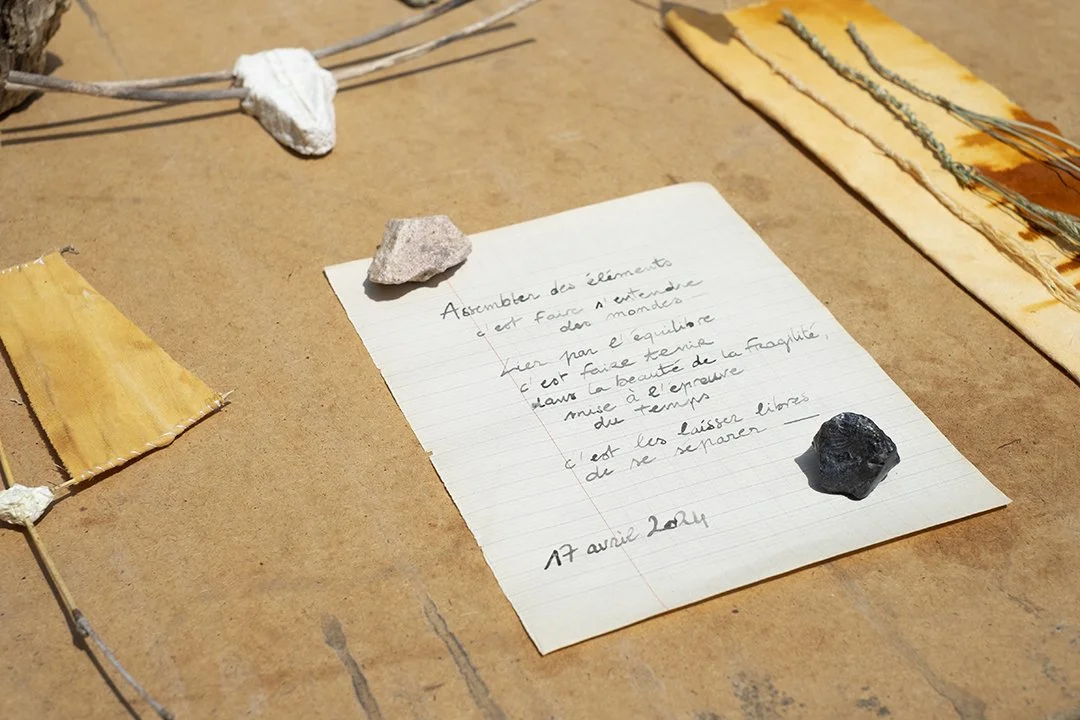 Assembler des éléments
c'est faire s'entendre
des mondes
Lier par l'équilibre
c'est faire tenir
dans la beauté de la fragilité,
mise à l'épreuve
du temps
c'est les laisser libres
de se séparer —
17 avril 2024